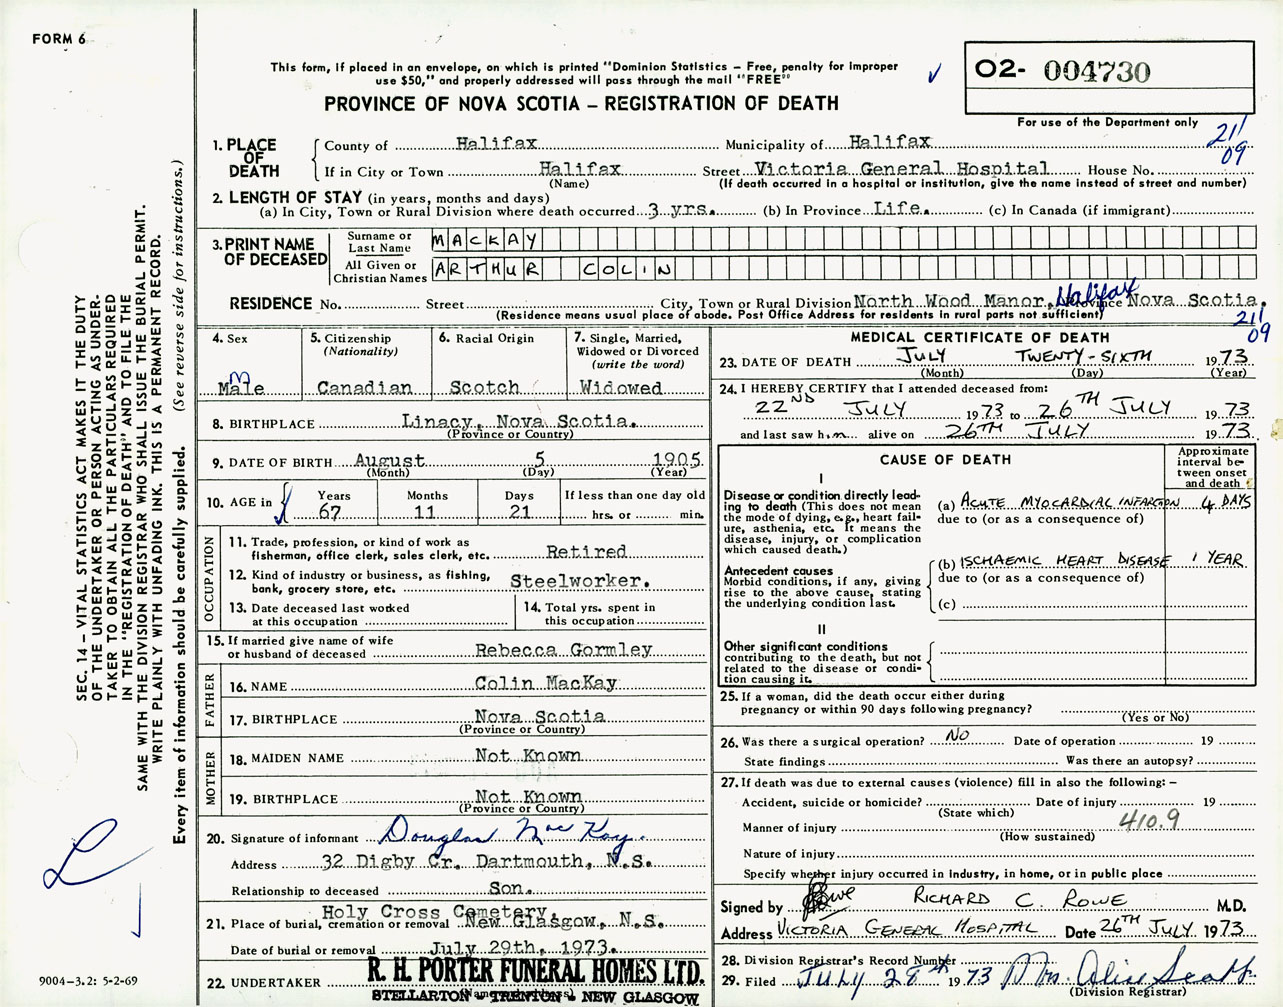 FORM 6
This form, if placed in an envelope, on which is printed "Dominion Statistics – Free, penalty for improper
use $50," and properly addressed will pass through the mail "FREE"
PROVINCE OF NOVA SCOTIA – REGISTRATION OF DEATH
02- 004730
For use of the Department only
21/
09
1. PLACE OF DEATH
County of Halifax Municipality of Halifax
If in City or Town Halifax Street Victoria General Hospital House No.
(Name) (If death occurred in a hospital or institution, give the name instead of street and number)
2. LENGTH OF STAY (in years, months and days)
(a) In City, Town or Rural Division where death occurred 3 yrs. (b) In Province Life. (c) In Canada (if immigrant)
3. PRINT NAME OF DECEASED
Surname or Last Name MACKAY
All Given or Christian Names ARTHUR COLIN
RESIDENCE No. Street City, Town or Rural Division North Wood Manor, Halifax Province Nova Scotia.
(Residence means usual place of abode. Post Office Address for residents in rural parts not sufficient)
21/
09
4. Sex
Male
M
5. Citizenship
(Nationality)
Canadian
6. Racial Origin
Scotch
7. Single, Married,
Widowed or Divorced
(write the word)
Widowed
8. BIRTHPLACE Linacy, Nova Scotia.
(Province or Country)
9. DATE OF BIRTH August 5 1905
(Month) (Day) (Year)
10. AGE in Years Months Days If less than one day old
67 11 21 hrs. or min.
OCCUPATION
11. Trade, profession, or kind of work as
fisherman, office clerk, sales clerk, etc. Retired
12. Kind of industry or business, as fishing,
bank, grocery store, etc. Steelworker.
13. Date deceased last worked
at this occupation
14. Total yrs. spent in
this occupation
15. If married give name of wife
or husband of deceased Rebecca Gormley
FATHER
16. NAME Colin MacKay
17. BIRTHPLACE Nova Scotia
(Province or Country)
MOTHER
18. MAIDEN NAME Not Known
19. BIRTHPLACE Not Known
(Province or Country)
20. Signature of informant Douglas MacKay.
Address 32 Digby Cr. Dartmouth, N.S.
Relationship to deceased Son.
Holy Cross Cemetery,
21. Place of burial, cremation or removal New Glasgow, N.S.
Date of burial or removal July 29th, 1973.
22. UNDERTAKER R. H. PORTER FUNERAL HOMES LTD.
STELLARTON - TRENTON - NEW GLASGOW
MEDICAL CERTIFICATE OF DEATH
23. DATE OF DEATH JULY TWENTY-SIXTH 1973
(Month) (Day) (Year)
24. I HEREBY CERTIFY that I attended deceased from:
22ND JULY 1973 to 26TH JULY 1973
and last saw him alive on 26TH JULY 1973
CAUSE OF DEATH
Approximate
interval be-
tween onset
and death
I
Disease or condition directly lead-
ing to death (This does not mean
the mode of dying, e.g., heart fail-
ure, asthenia, etc. It means the
disease, injury, or complication
which caused death.)
(a) ACUTE MYOCARDIAL INFARCTION 4 DAYS
due to (or as a consequence of)
Antecedent causes
Morbid conditions, if any, giving
rise to the above cause, stating
the underlying condition last.
(b) ISCHAEMIC HEART DISEASE 1 YEAR
due to (or as a consequence of)
(c)
II
Other significant conditions
contributing to the death, but not
related to the disease or condi-
tion causing it.
25. If a woman, did the death occur either during
pregnancy or within 90 days following pregnancy?
(Yes or No)
26. Was there a surgical operation? No Date of operation 19
State findings Was there an autopsy?
27. If death was due to external causes (violence) fill in also the following: –
Accident, suicide or homicide? Date of injury 19
(State which)
410.9
Manner of injury
(How sustained)
Nature of injury
Specify whether injury occurred in industry, in home, or in public place
Signed by Rowe RICHARD C. ROWE M.D.
Address VICTORIA GENERAL HOSPITAL Date 26TH JULY 1973
28. Division Registrar's Record Number
29. Filed July 28th 1973 Mrs. Alice Scott
(Division Registrar)
SEC. 14 – VITAL STATISTICS ACT MAKES IT THE DUTY
OF THE UNDERTAKER OR PERSON ACTING AS UNDER-
TAKER TO OBTAIN ALL THE PARTICULARS REQUIRED
IN THE "REGISTRATION OF DEATH" AND TO FILE THE
SAME WITH THE DIVISION REGISTRAR WHO SHALL ISSUE THE BURIAL PERMIT.
WRITE PLAINLY WITH UNFADING INK. THIS IS A PERMANENT RECORD.
Every item of information should be carefully supplied. (See reverse side for instructions.)
L
9004-3.2: 5-2-69